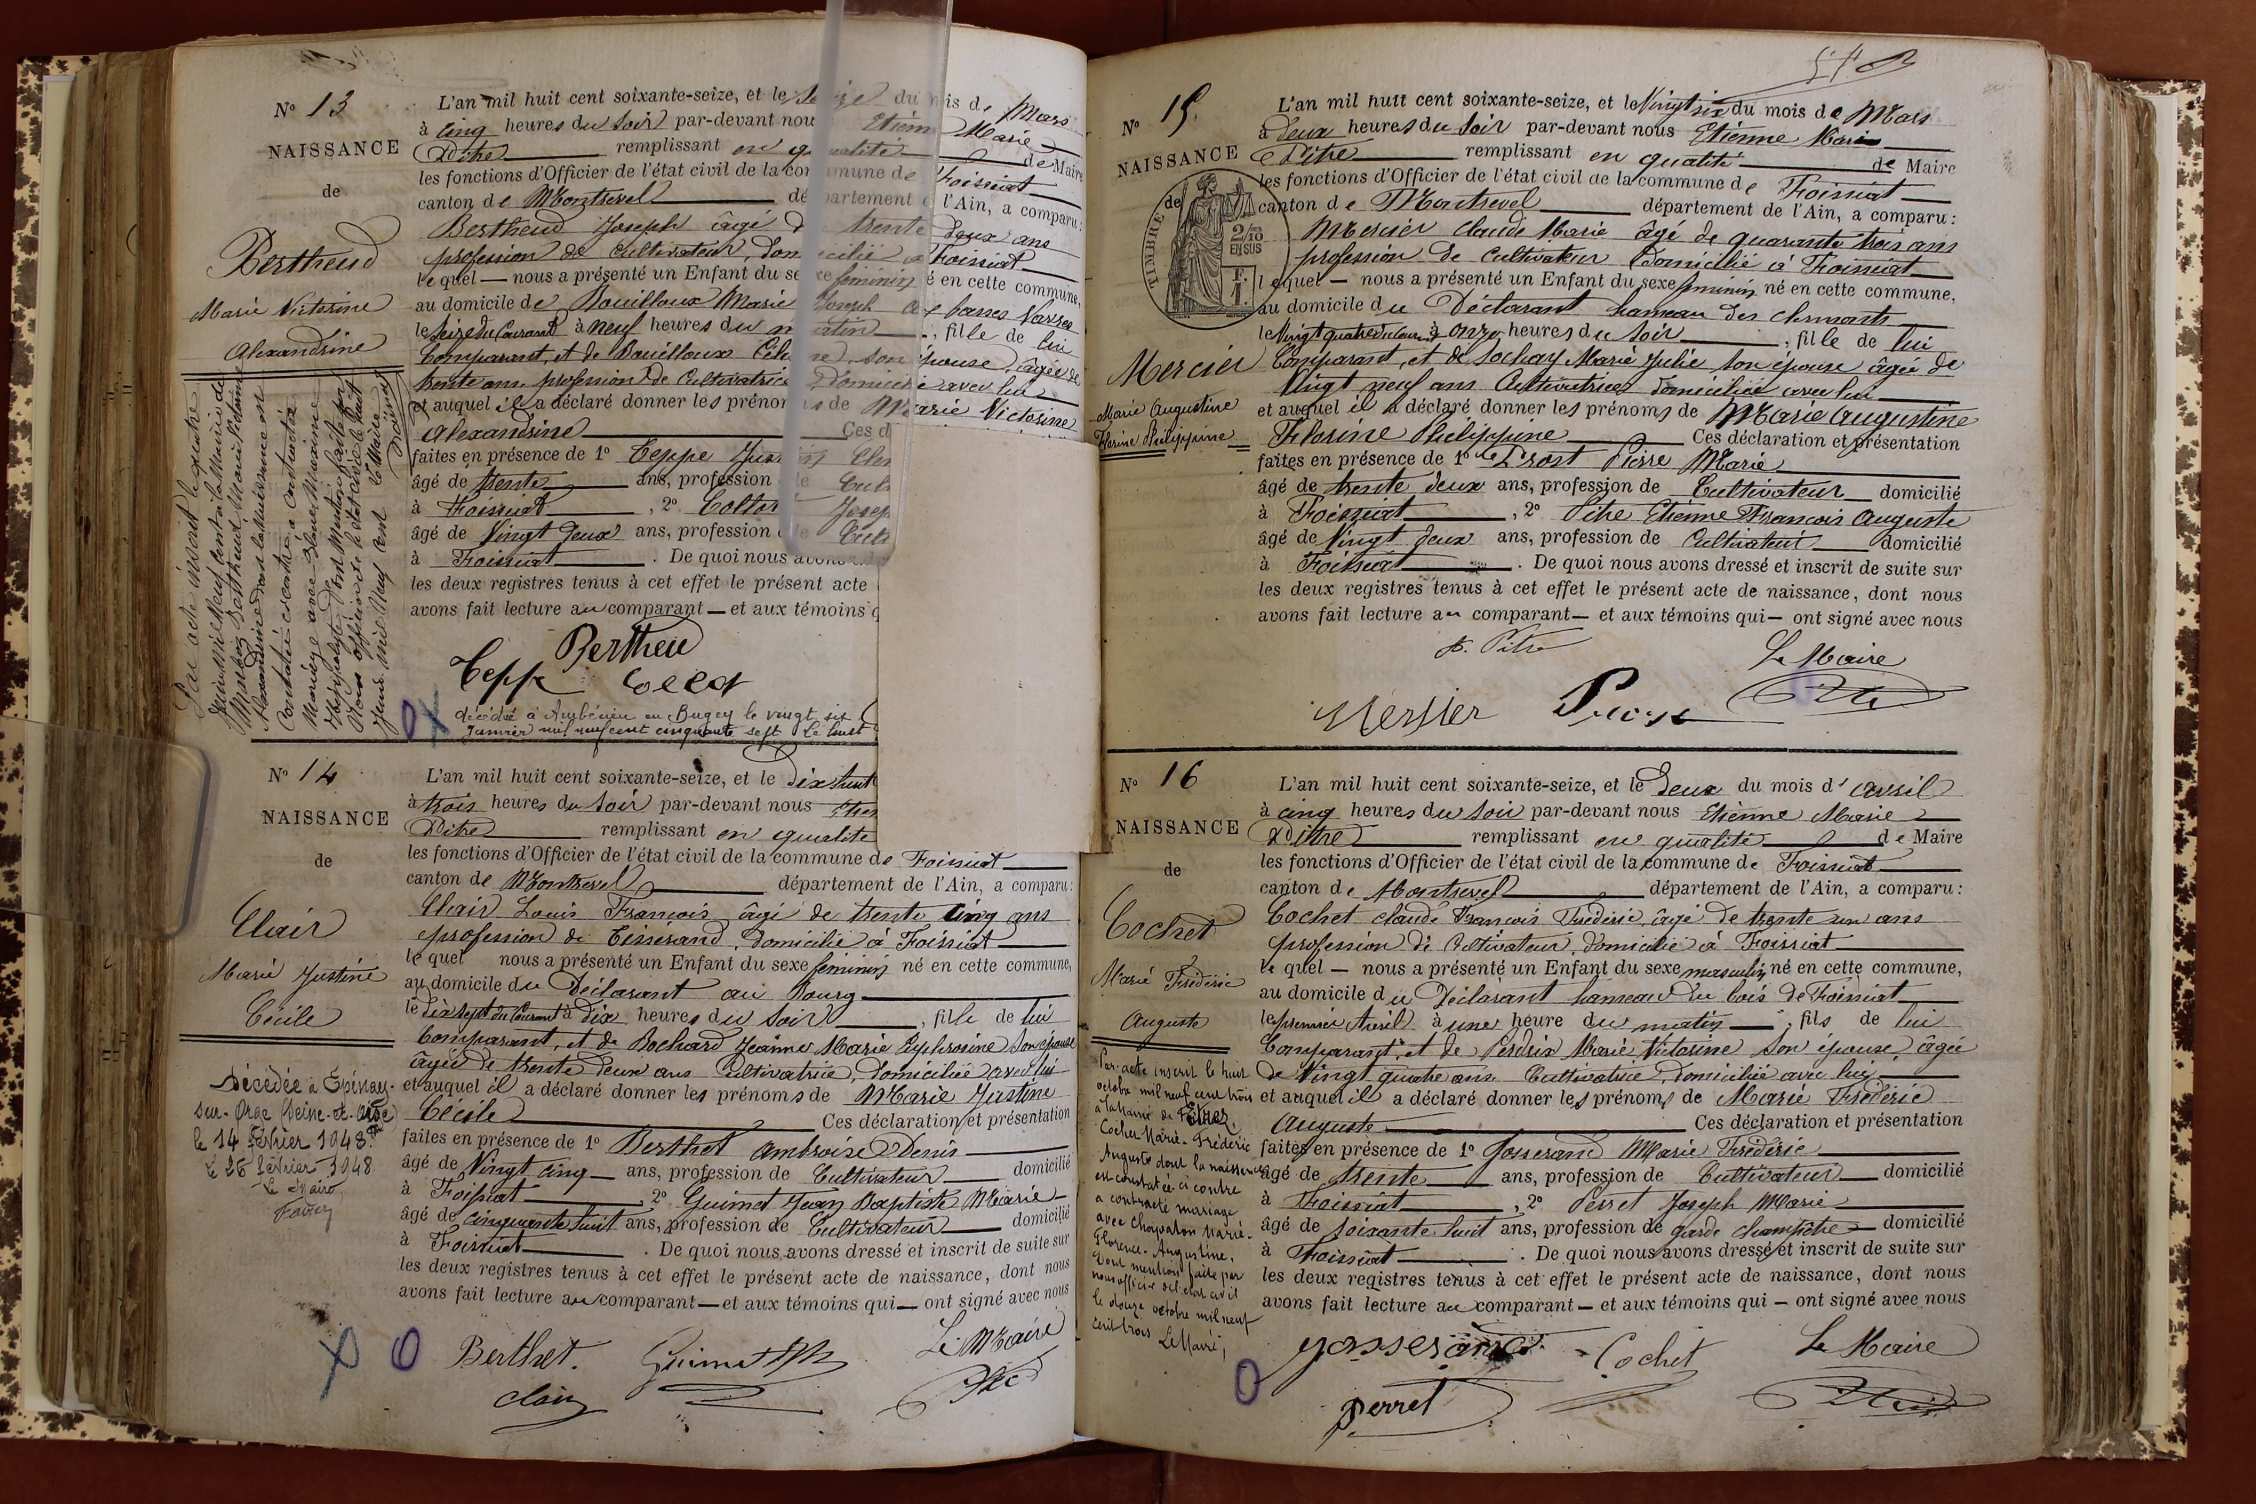 N° 13
NAISSANCE
de
Bertheud
Marie Victorine
Alexandrine
L'an mil huit cent soixante-seize, et le seize du mois de Mars
à cinq heures du soir par-devant nous Etienne Marie
Pitre remplissant en qualité de Maire
les fonctions d'Officier de l'état civil de la commune de Foissiat
canton de Montrevel département de l'Ain, a comparu:
Bertheud Joseph âgé de trente deux ans
profession de cultivateur, domicilié à Foissiat
lequel — nous a présenté un Enfant du sexe féminin né en cette commune,
au domicile de Bouilloux Marie Joseph
le seize du Courant à neuf heures du matin, fille de lui
Comparant, et de Bouilloux son épouse, âgée de
trente ans profession de Cultivatrice domiciliée avec lui
et auquel il a déclaré donner les prénoms de Marie Victorine
Alexandrine Ces d
faites en présence de 1° Teppe
âgé de trente ans, profession de Cult
à Foissiat, 2° Collet Josep
âgé de Vingt deux ans, profession de Cult
à Foissiat. De quoi nous avons
les deux registres tenus à cet effet le présent acte
avons fait lecture au comparant — et aux témoins q
Bertheu
Tepp Collet
décédée à Ambérieu en Bugey le vingt six
Janvier mil neuf cent cinquante sept
Par acte inscrit le quatre
Juin mil neuf cent à la Mairie de
Bertheud Marie Victorine
Alexandrine dont la naissance est
constatée ci contre a contracté
mariage avec
Dont Mention faite par
Nous officier de l'état civil le huit
Juin mil neuf cent Le Maire
N° 14
NAISSANCE
de
Clair
Marie Justine
Cécile
Décédée à Epinay-
sur-Orge (Seine-et-Oise)
le 14 février 1948
le 26 février 1948
Le Maire
L'an mil huit cent soixante-seize, et le dix huit
à trois heures du soir par-devant nous Etien
Pitre remplissant en qualité
les fonctions d'Officier de l'état civil de la commune de Foissiat
canton de Montrevel département de l'Ain, a comparu:
Clair Louis François âgé de trente cinq ans
profession de Tisserand, domicilié à Foissiat
lequel nous a présenté un Enfant du sexe féminin né en cette commune,
au domicile du Déclarant au Bourg
le dix sept du Courant à dix heures du soir, fille de lui
Comparant, et de Bochard Jeanne Marie Euphrosine son épouse
âgée de trente deux ans Cultivatrice, domiciliée avec lui
et auquel il a déclaré donner les prénoms de Marie Justine
Cécile Ces déclaration et présentation
faites en présence de 1° Berthet Ambroise Denis
âgé de Vingt cinq ans, profession de Cultivateur domicilié
à Foissiat, 2° Guimet Jean Baptiste Marie
âgé de cinquante huit ans, profession de Cultivateur domicilié
à Foissiat. De quoi nous avons dressé et inscrit de suite sur
les deux registres tenus à cet effet le présent acte de naissance, dont nous
avons fait lecture au comparant — et aux témoins qui — ont signé avec nous
Berthet. Guimet Le Maire
Clair
N° 15
NAISSANCE
de
TIMBRE
2/10
EN SUS
Mercier
Marie Augustine
Florine Philippine
L'an mil huit cent soixante-seize, et le Vingt six du mois de Mars
à deux heures du soir par-devant nous Etienne Marie
Pitre remplissant en qualité de Maire
les fonctions d'Officier de l'état civil de la commune de Foissiat
canton de Montrevel département de l'Ain, a comparu:
Mercier Claude Marie âgé de quarante trois ans
profession de Cultivateur Domicilié à Foissiat
lequel — nous a présenté un Enfant du sexe féminin né en cette commune,
au domicile du Déclarant hameau des
le Vingt quatre du Courant à onze heures du soir, fille de lui
Comparant, et de Sochay Marie Julie son épouse âgée de
Vingt neuf ans Cultivatrice, domiciliée avec lui
et auquel il a déclaré donner les prénoms de Marie Augustine
Florine Philippine Ces déclaration et présentation
faites en présence de 1° Prost Pierre Marie
âgé de trente deux ans, profession de Cultivateur domicilié
à Foissiat, 2° Pitre Etienne François Auguste
âgé de Vingt deux ans, profession de Cultivateur domicilié
à Foissiat. De quoi nous avons dressé et inscrit de suite sur
les deux registres tenus à cet effet le présent acte de naissance, dont nous
avons fait lecture au comparant — et aux témoins qui — ont signé avec nous
A. Pitre Le Maire
Mersier Prost Pitre
N° 16
NAISSANCE
de
Cochet
Marie Frédéric
Auguste
Par acte inscrit le huit
octobre mil neuf cent trois
à la Mairie de
Cochet Marie-Frédéric
Auguste dont la naissance
est constatée ci contre
a contracté mariage
avec Chapalon Marie-
Florence-Augustine.
Dont mention faite par
nous officier de l'état civil
le douze octobre mil neuf
cent trois Le Maire;
L'an mil huit cent soixante-seize, et le deux du mois d'avril
à cinq heures du soir par-devant nous Etienne Marie
Pitre remplissant en qualité de Maire
les fonctions d'Officier de l'état civil de la commune de Foissiat
canton de Montrevel département de l'Ain, a comparu:
Cochet Claude François Frédéric âgé de trente un ans
profession de Cultivateur, domicilié à Foissiat
lequel — nous a présenté un Enfant du sexe masculin né en cette commune,
au domicile du Déclarant hameau du bois de Foissiat
le premier Avril à une heure du matin, fils de lui
Comparant, et de Perdrix Marie Victorine son épouse, âgée
de Vingt quatre ans Cultivatrice, domiciliée avec lui,
et auquel il a déclaré donner les prénoms de Marie Frédéric
Auguste Ces déclaration et présentation
faites en présence de 1° Josserand Marie Frédéric
âgé de trente ans, profession de Cultivateur domicilié
à Foissiat, 2° Perret Joseph Marie
âgé de soixante huit ans, profession de garde champêtre domicilié
à Foissiat. De quoi nous avons dressé et inscrit de suite sur
les deux registres tenus à cet effet le présent acte de naissance, dont nous
avons fait lecture au comparant — et aux témoins qui — ont signé avec nous
Josserand Cochet Le Maire
Perret Pitre